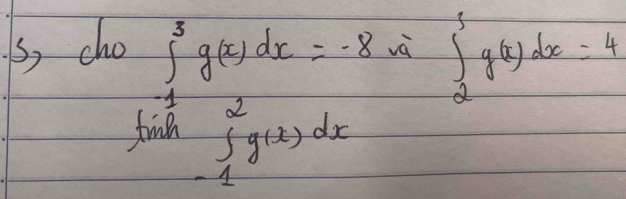 5, cho ∫₋₁³ g(x) dx = -8 và ∫₂³ g(x) dx = 4
tính ∫₋₁² g(x) dx